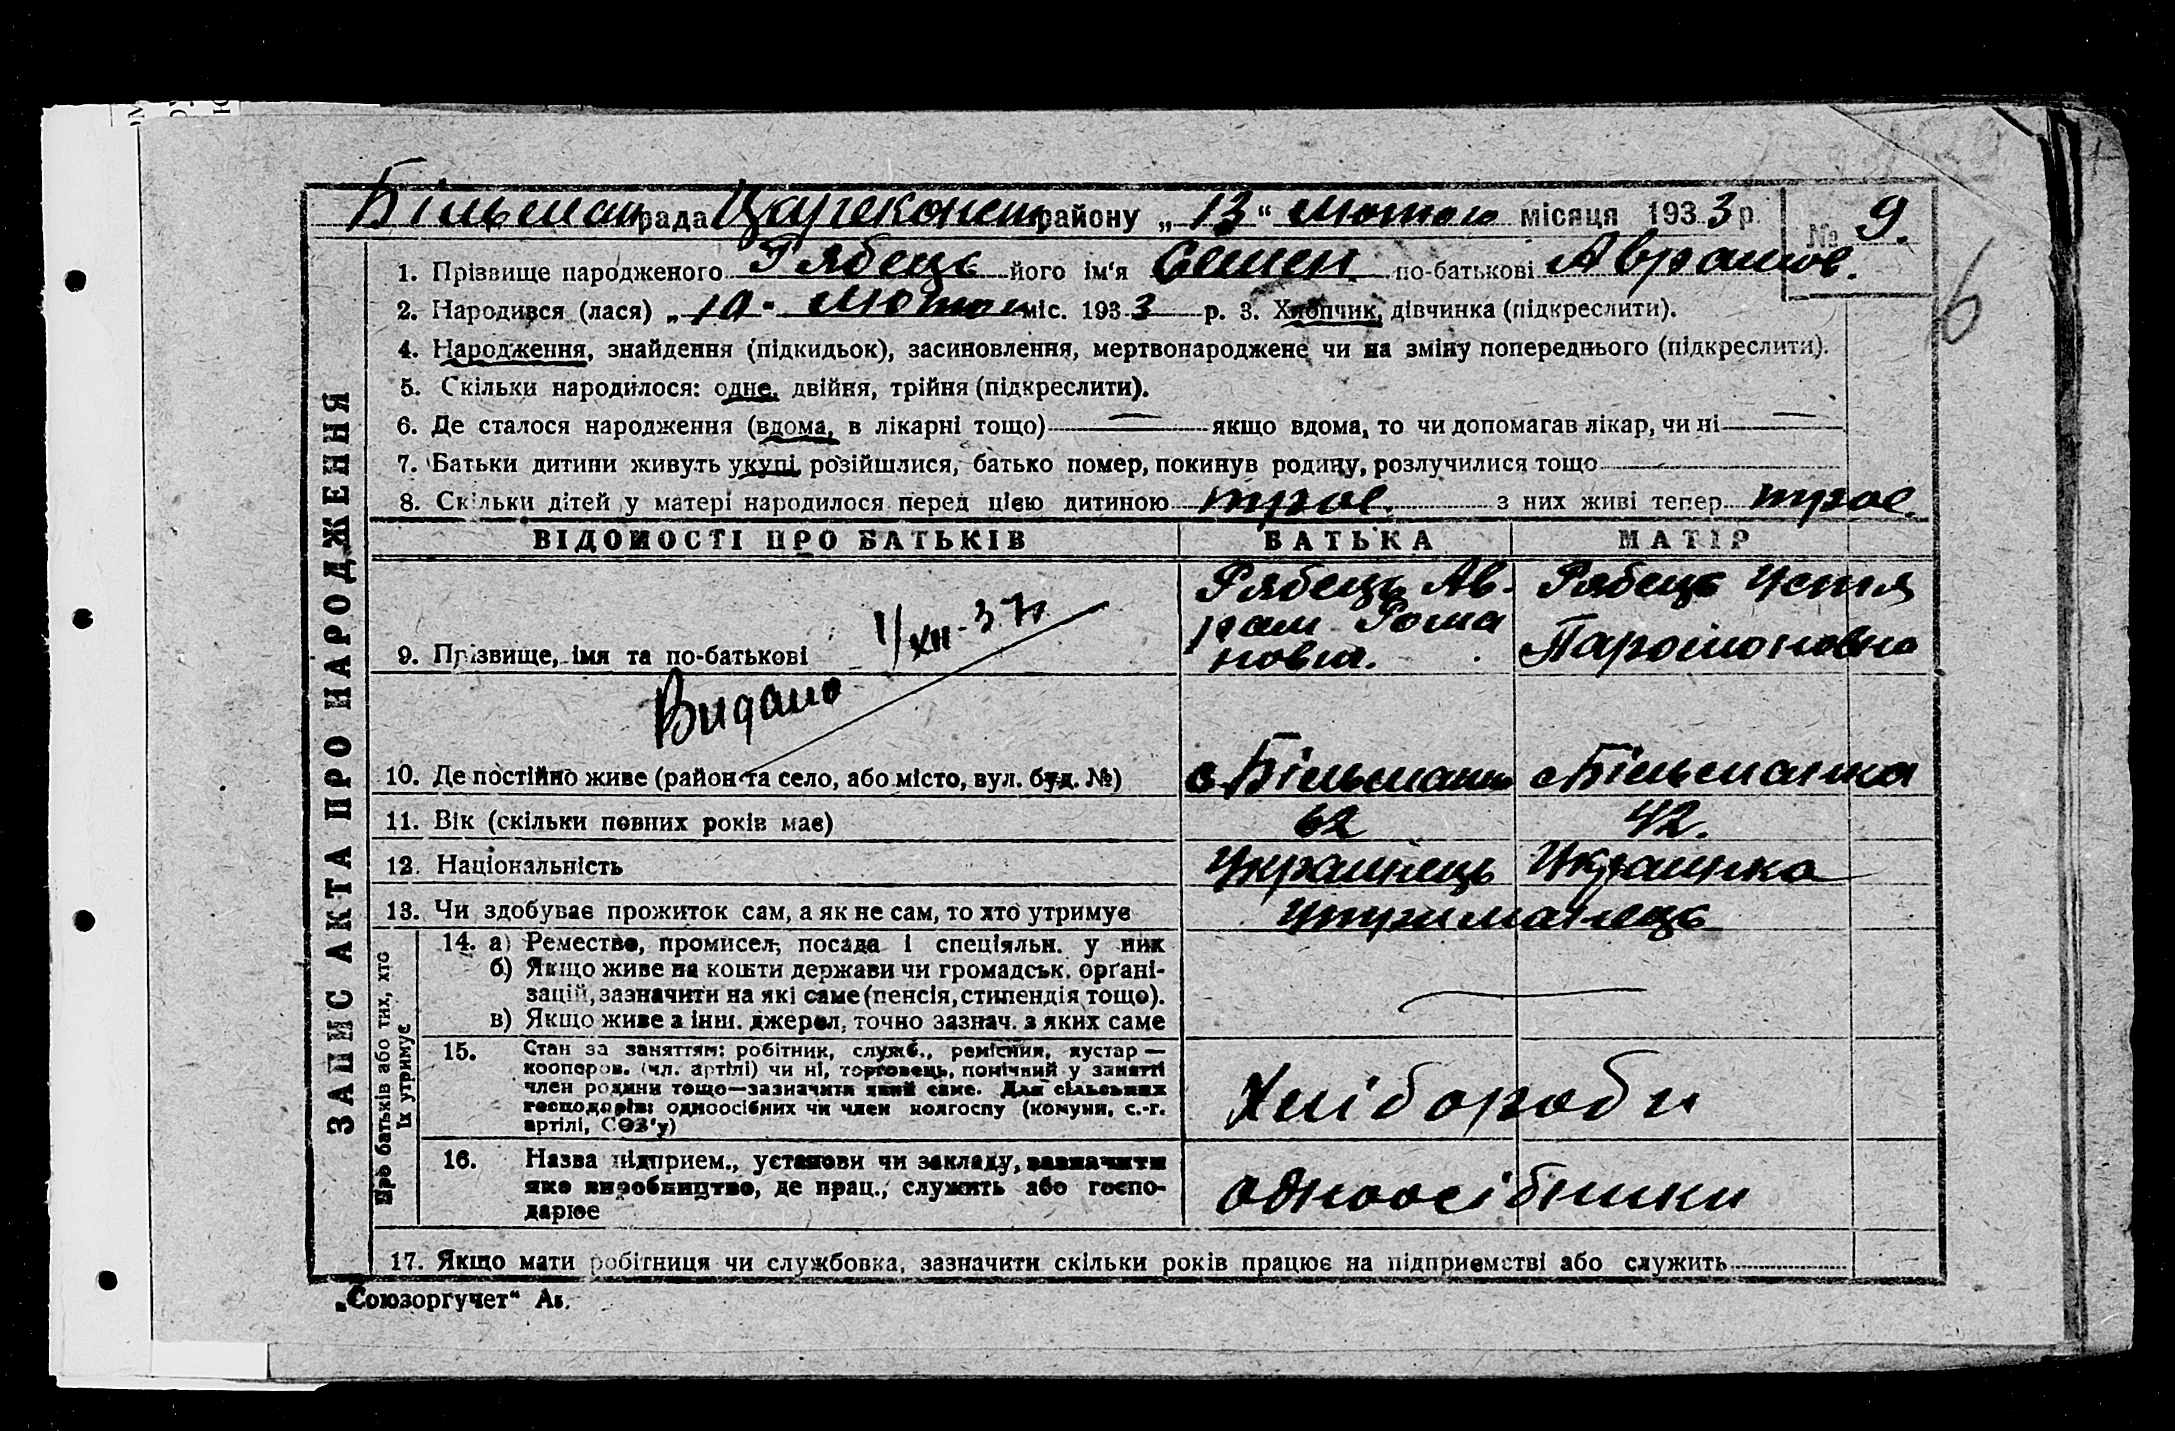 Більман рада Царекон району „13“ лютого місяця 1933 р. № 9.
1. Прізвище народженого Рябець його ім'я Семен по-батькові Аврамов.
2. Народився (лася) „10" лютого міс. 1933 р. 3. Хлопчик, дівчинка (підкреслити).
6
4. Народження, знайдення (підкидьок), засиновлення, мертвонароджене чи на зміну попереднього (підкреслити).
5. Скільки народилося: одне, двійня, трійня (підкреслити).
6. Де сталося народження (вдома, в лікарні тощо) — якщо вдома, то чи допомагав лікар, чи ні —
7. Батьки дитини живуть укупі, розійшлися, батько помер, покинув родину, розлучилися тощо
8. Скільки дітей у матері народилося перед цією дитиною троє. з них живі тепер троє.
ЗАПИС АКТА ПРО НАРОДЖЕННЯ
ВІДОМОСТІ ПРО БАТЬКІВ БАТЬКА МАТІР
9. Прізвище, імя та по-батькові
Рябець Ав-
рам Рома
нович.
Рябець Устя
Парамоновна
1/XII-37р
Видано
10. Де постійно живе (район та село, або місто, вул. буд. №) с Більманка с Більманка
11. Вік (скільки повних років має) 62 42.
12. Національність Українець Українка
13. Чи здобуває прожиток сам, а як не сам, то хто утримує утриманець
Про батьків або тих, хто
їх утримує
14. а) Ремество, промисел, посада і спеціяльн. у них
б) Якщо живе на кошти держави чи громадськ. орґані-
зацій, зазначити на які саме (пенсія, стипендія тощо).
в) Якщо живе з інш. джерел, точно зазнач. з яких саме —
15. Стан за заняттям: робітник, служб., ремісник, кустар —
кооперов. (чл. артілі) чи ні, торговець, помічний у занятті
член родини тощо—зазначити який саме. Для сільських
господарів: одноосібних чи член колгоспу (комуни, с.-г.
артілі, СОЗ'у)
Хлібороби
16. Назва підприєм., установи чи закладу, зазначити
яке виробництво, де прац., служить або госпо-
дарює
одноосібники
17. Якщо мати робітниця чи службовка, зазначити скільки років працює на підприємстві або служить
„Союзоргучет“